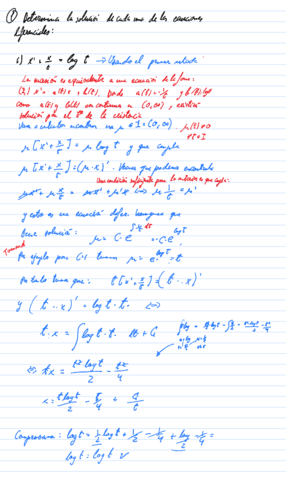 ① Determina la solución de cada una de las ecuaciones
diferenciales:
x' + x/t = log t → Usando el primer método
La ecuación es equivalente a una ecuación de la forma:
x' = a(t)x + b(t). Donde a(t) = -1/t y b(t) = log t
como a(t) y b(t) son continuas en (0,∞), existirá
solución por el tª de la existencia
Vamos a calcular un μ en I = (0,∞). μ(t) ≠ 0
∀t∈I
μ[x' + x/t] = μ log t y que cumpla
μ[x' + x/t] = (μ·x)'. Vemos que podemos encontrarlo
Una condición suficiente para lo anterior es que cumpla:
μx' + μ x/t = μx' + μ'x ⟺ μ 1/t = μ'
y esto es una ecuación difer. homogénea que
tiene solución: μ = C·e^{∫1/t dt} = C·e^{log t}
Tomando
Por ejemplo por C=1 tenemos μ = e^{log t} = t
Por tanto tenemos que: t[x' + x/t] = (t·x)'
y (t·x)' = log t · t. ⟺
t·x = ∫ log t · t. dt + C
⟺ tx = t² log t / 2 - t²/4
x = t log t / 2 - t/4 + C/t
Comprobamos: log t = 1/2 log t + 1/2 - 1/4 + log t/2 - 1/4 =
log t = log t ✓